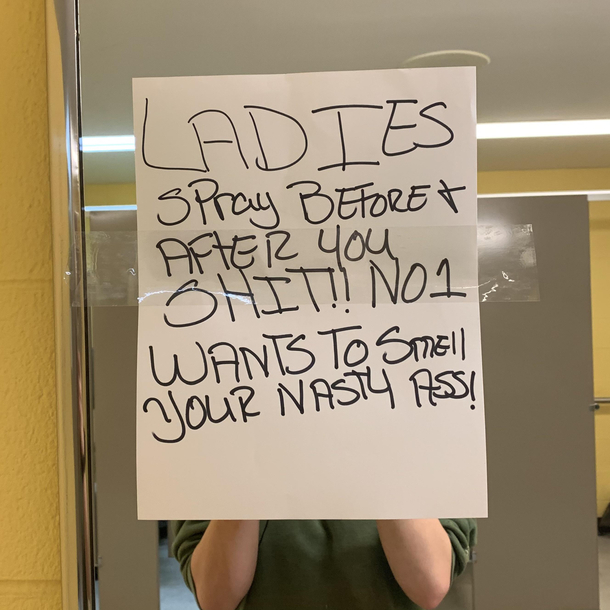 LADIES
SPray BEFORE &
AFTER YOU
SHIT!! NO1
WANTS TO SmEll
YOUR NASTY ASS!